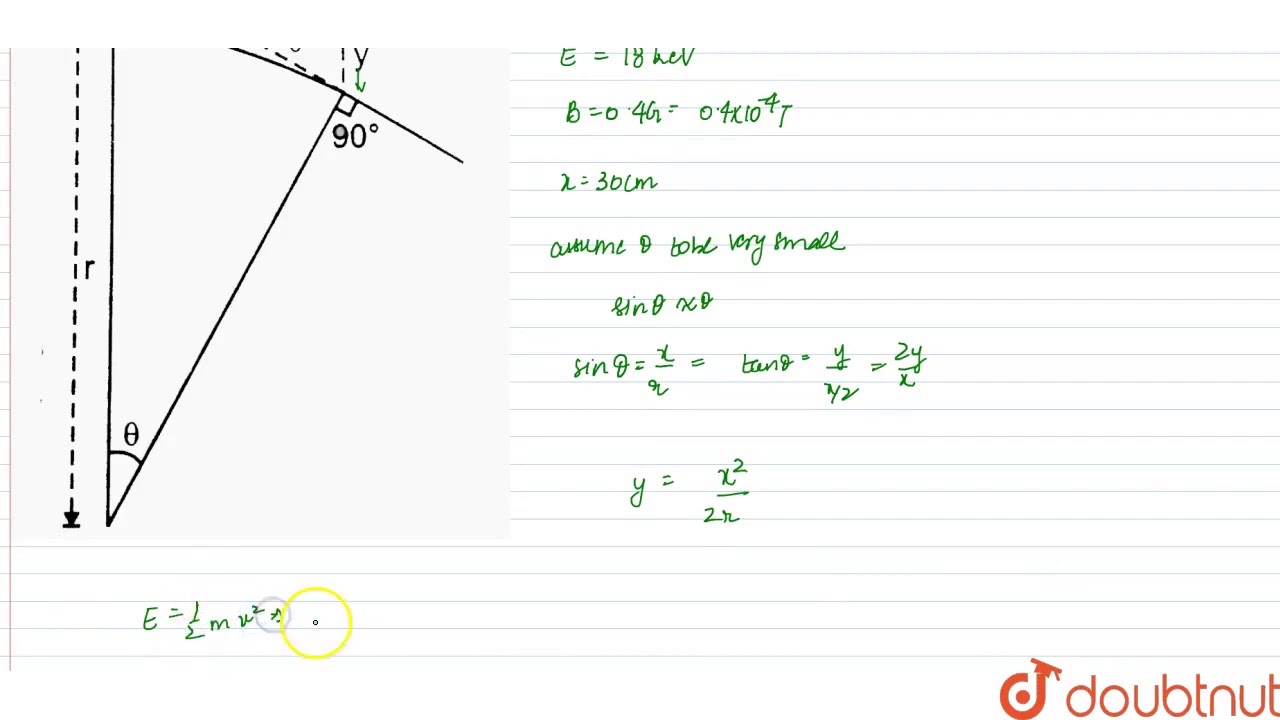 y
90°
r
θ
E = 18 keV
B = 0.4G = 0.4x10⁻⁴T
x = 30cm
assume θ to be very small
sinθ ≈ θ
sinθ = x/r = tanθ = y/x/2 = 2y/x
y = x²/2r
E = 1/2 m v² ⇒
doubtnut